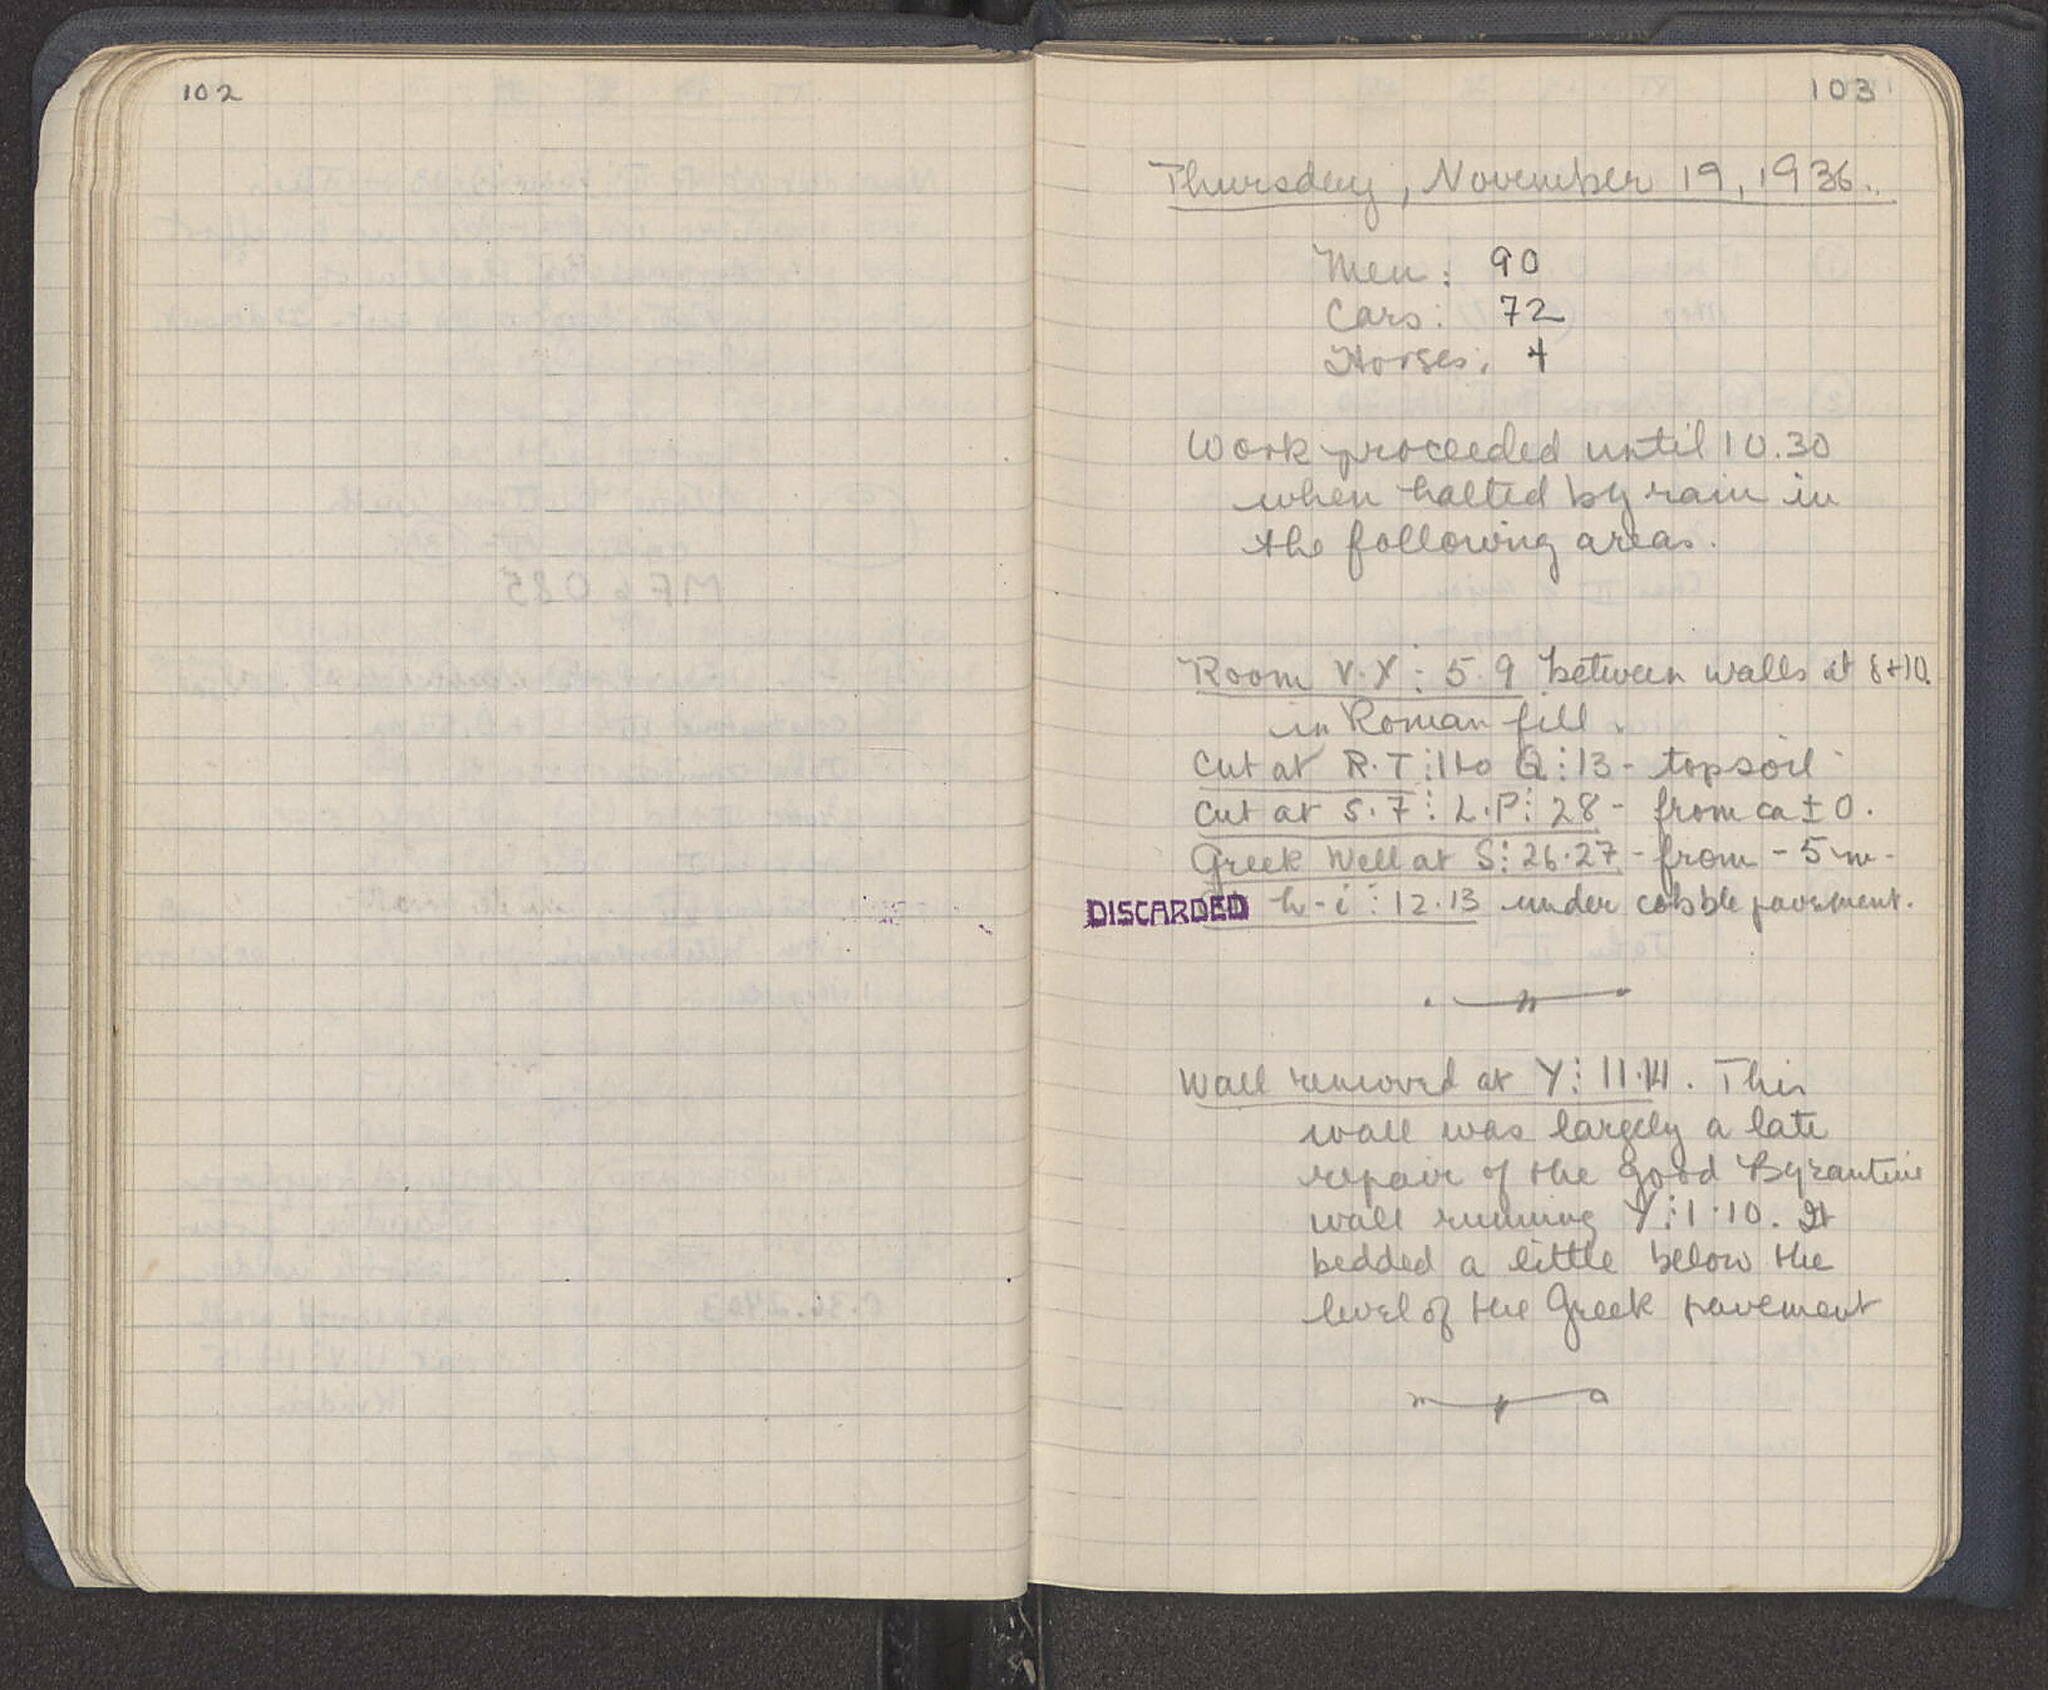 102
103
Thursday, November 19, 1936.
Men: 90
Cars: 72
Horses: 4
Work proceeded until 10.30
when halted by rain in
the following areas.
Room V·X : 5·9 between walls at 8+10.
in Roman fill.
Cut at R·T : 1 to Q : 13 - topsoil
Cut at S·7 : L·P : 28 - from ca ± 0.
Greek Well at S : 26·27 - from - 5 m.
DISCARDED h-i : 12·13 under cobble pavement.
Wall removed at Y : 11·14. This
wall was largely a late
repair of the good Byzantine
wall running Y : 1·10. It
bedded a little below the
level of the Greek pavement